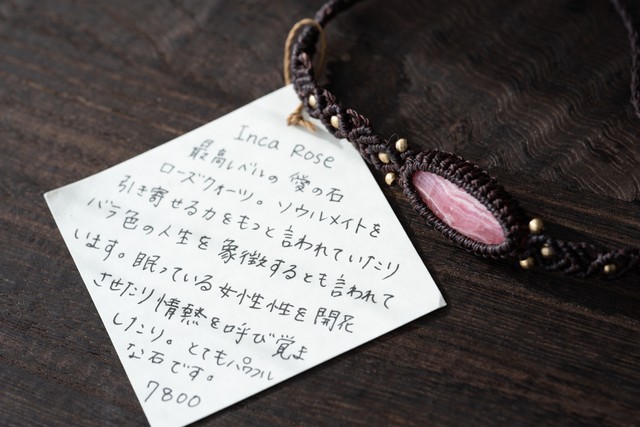 Inca Rose
最高レベルの 愛の石
ローズクォーツ。ソウルメイトを
引き寄せる力をもっと言われていたり
バラ色の人生を象徴するとも言われて
います。眠っている女性性を開花
させたり情熱を呼び覚ま
したり。とてもパワフル
な石です。
7800